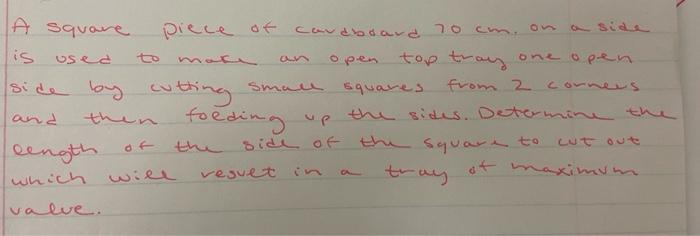 A square piece of cardboard 70 cm. on a side
is used to make an open top tray one open
side by cutting small squares from 2 corners
and then folding up the sides. Determine the
length of the side of the square to cut out
which will result in a tray of maximum
value.